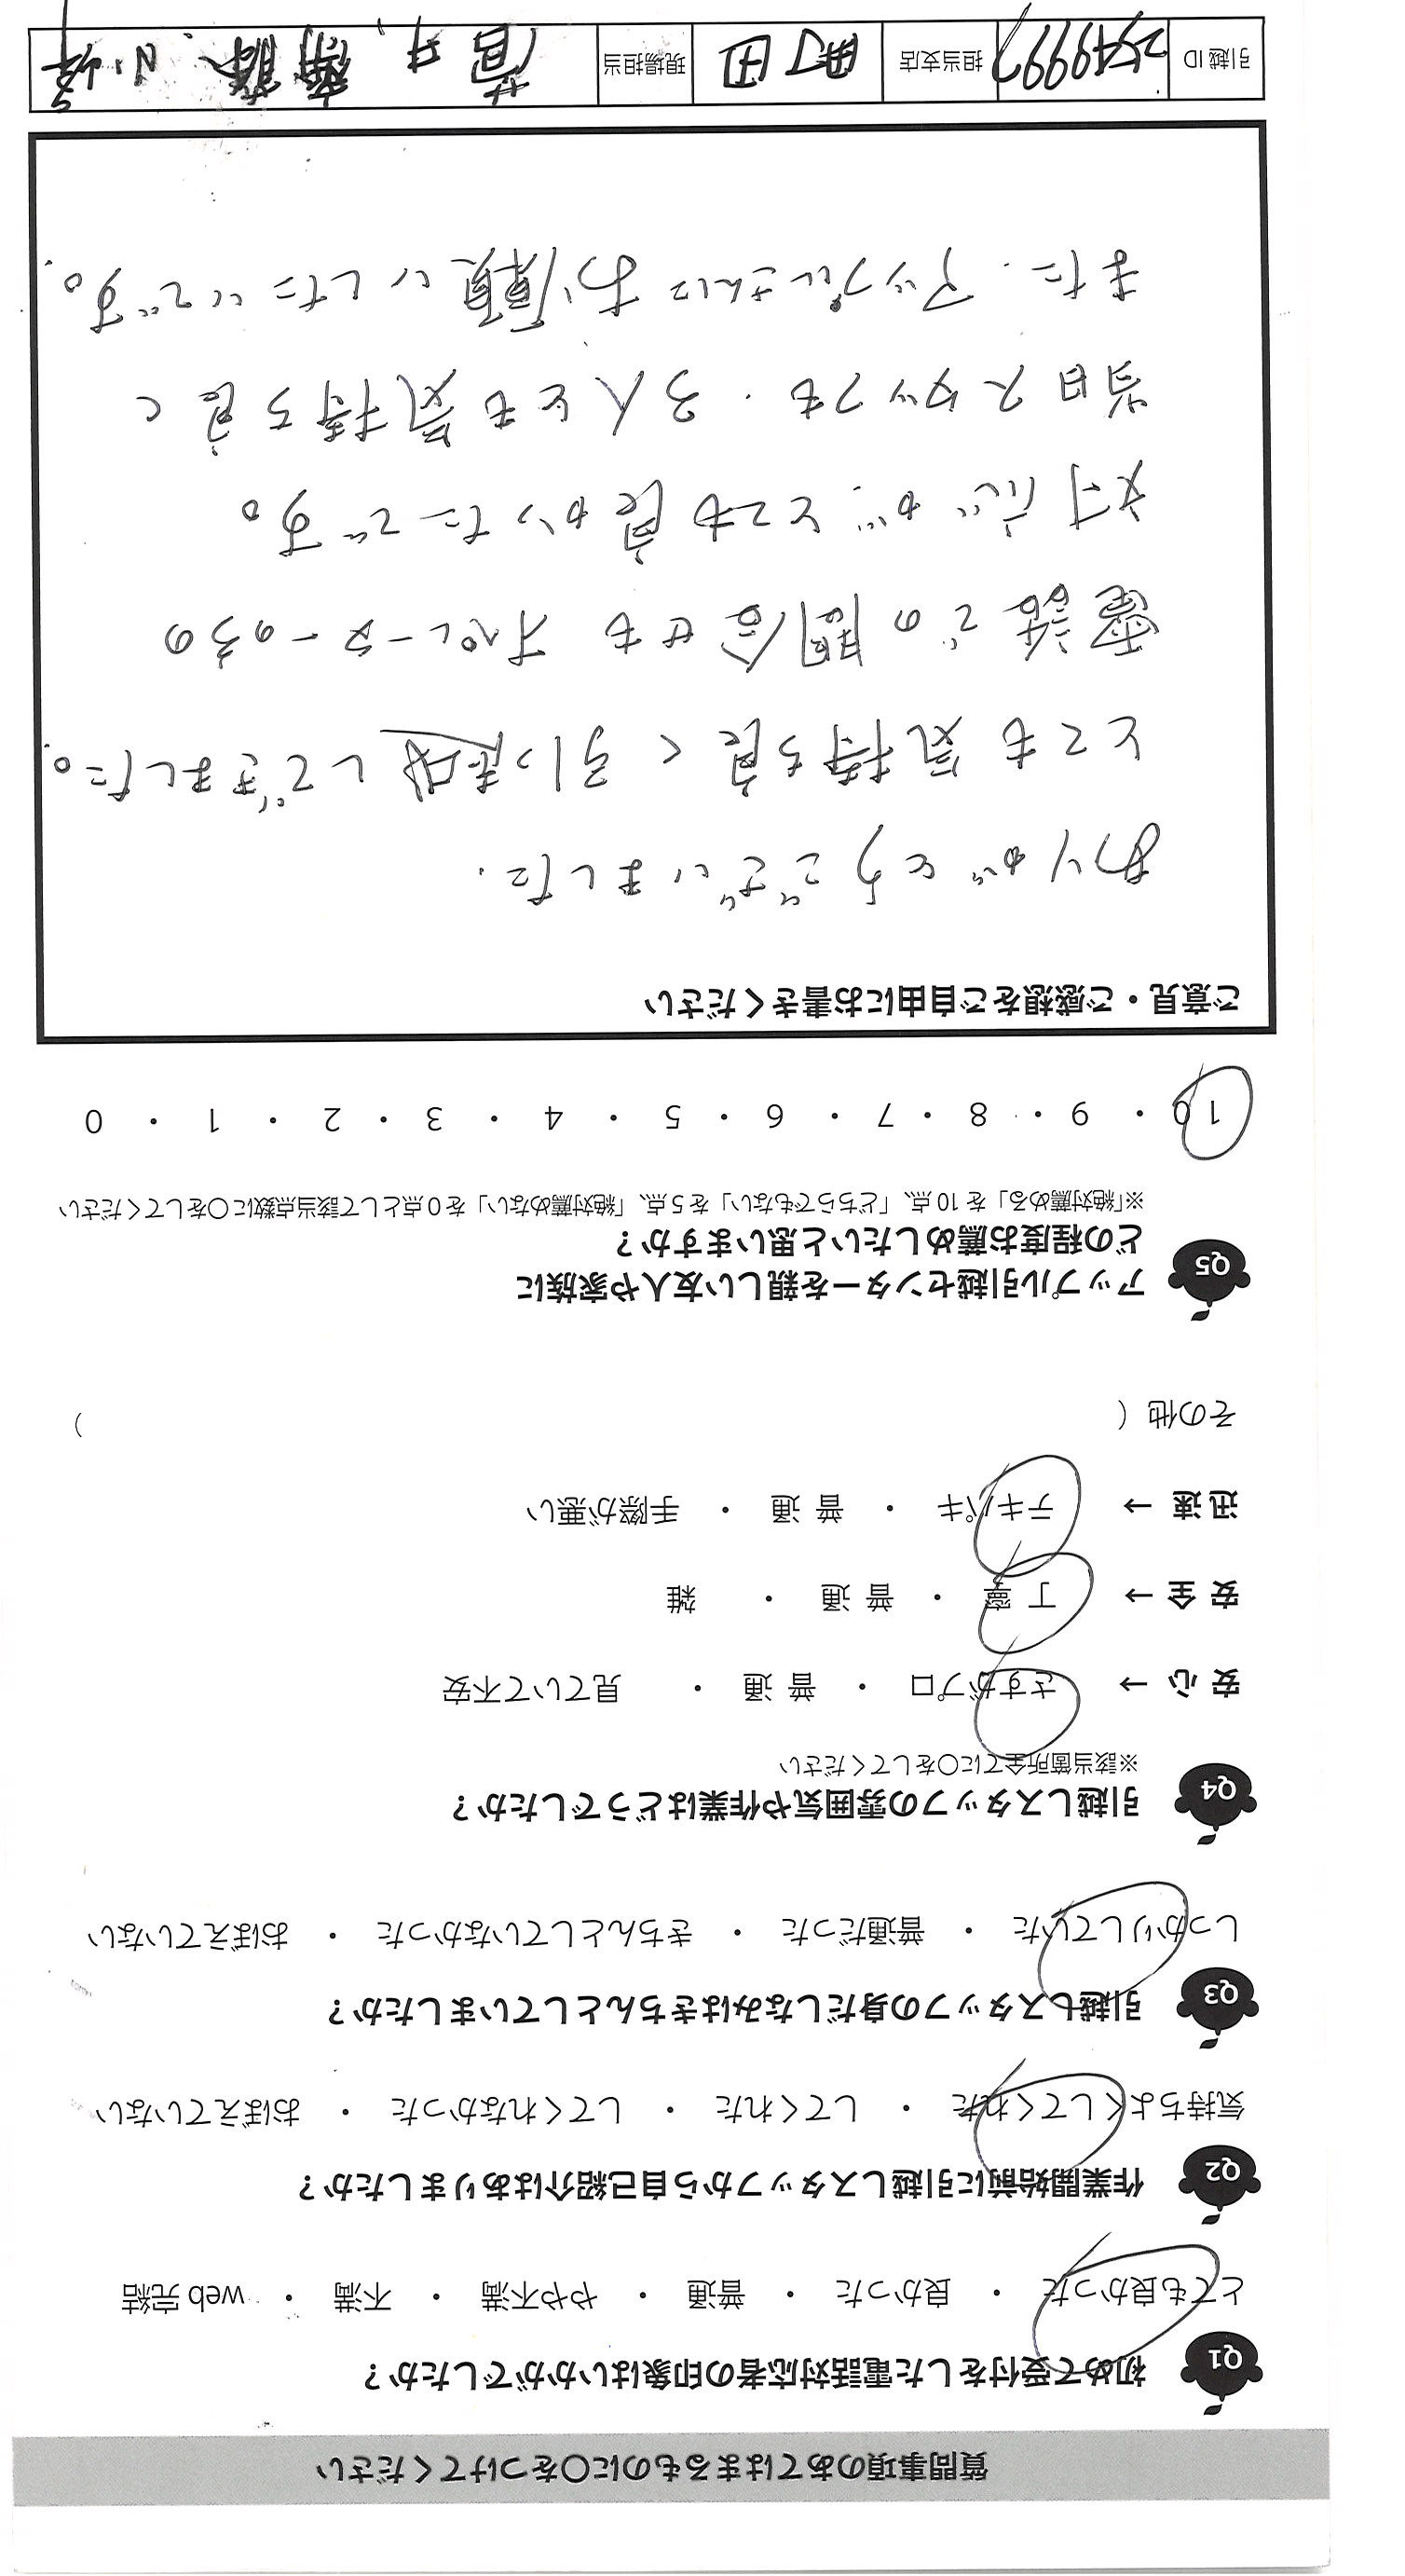 質問事項のあてはまるものに○をつけてください
Q1 初めて受付をした電話対応者の印象はいかがでしたか？
とても良かった ・ 良かった ・ 普通 ・ やや不満 ・ 不満 ・ web 完結
Q2 作業開始前に引越しスタッフから自己紹介はありましたか？
気持ちよくしてくれた ・ してくれた ・ してくれなかった ・ おぼえていない
Q3 引越しスタッフの身だしなみはきちんとしていましたか？
しっかりしていた ・ 普通だった ・ きちんとしていなかった ・ おぼえていない
Q4 引越しスタッフの雰囲気や作業はどうでしたか？
※該当箇所全てに○をしてください
安 心 → さすがプロ ・ 普 通 ・ 見ていて不安
安 全 → 丁 寧 ・ 普 通 ・ 雑
迅 速 → テキパキ ・ 普 通 ・ 手際が悪い
その他（ ）
Q5 アップル引越センターを親しい友人や家族に
どの程度お薦めしたいと思いますか？
※「絶対薦める」を 10 点、「どちらでもない」を 5 点、「絶対薦めない」を 0 点として該当点数に○をしてください
10 ・ 9 ・ 8 ・ 7 ・ 6 ・ 5 ・ 4 ・ 3 ・ 2 ・ 1 ・ 0
ご意見・ご感想をご自由にお書きください
ありがとうございました。
とても気持ち良く引っ越しできました。
電話での問合せも オペレーターの方の
対応がとても良かったです。
当日スタッフも、3人とも気持ち良く
また、アップルさんにお願いしたいです。
引越 ID 担当支店 町田 現場担当